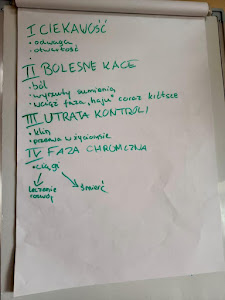 I CIEKAWOŚĆ
• odwaga
• otwartość
II BOLESNE KACE
• ból
• wyrzuty sumienia
• wciąż faza „haju” coraz krótsze
III UTRATA KONTROLI
• klin
• przerwa w życiorysie
IV FAZA CHRONICZNA
• ciągi
leczenie śmierć
rozwój